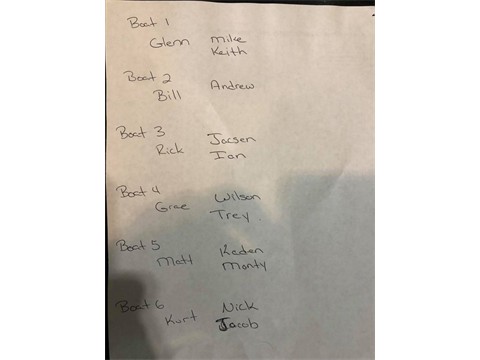 Boat 1
Glenn Mike
Keith
Boat 2
Bill Andrew
Boat 3 Jacsen
Rick Ian
Boat 4 Wilson
Grae Trey
Boat 5 Kaden
Matt Monty
Boat 6 Nick
Kurt Jacob